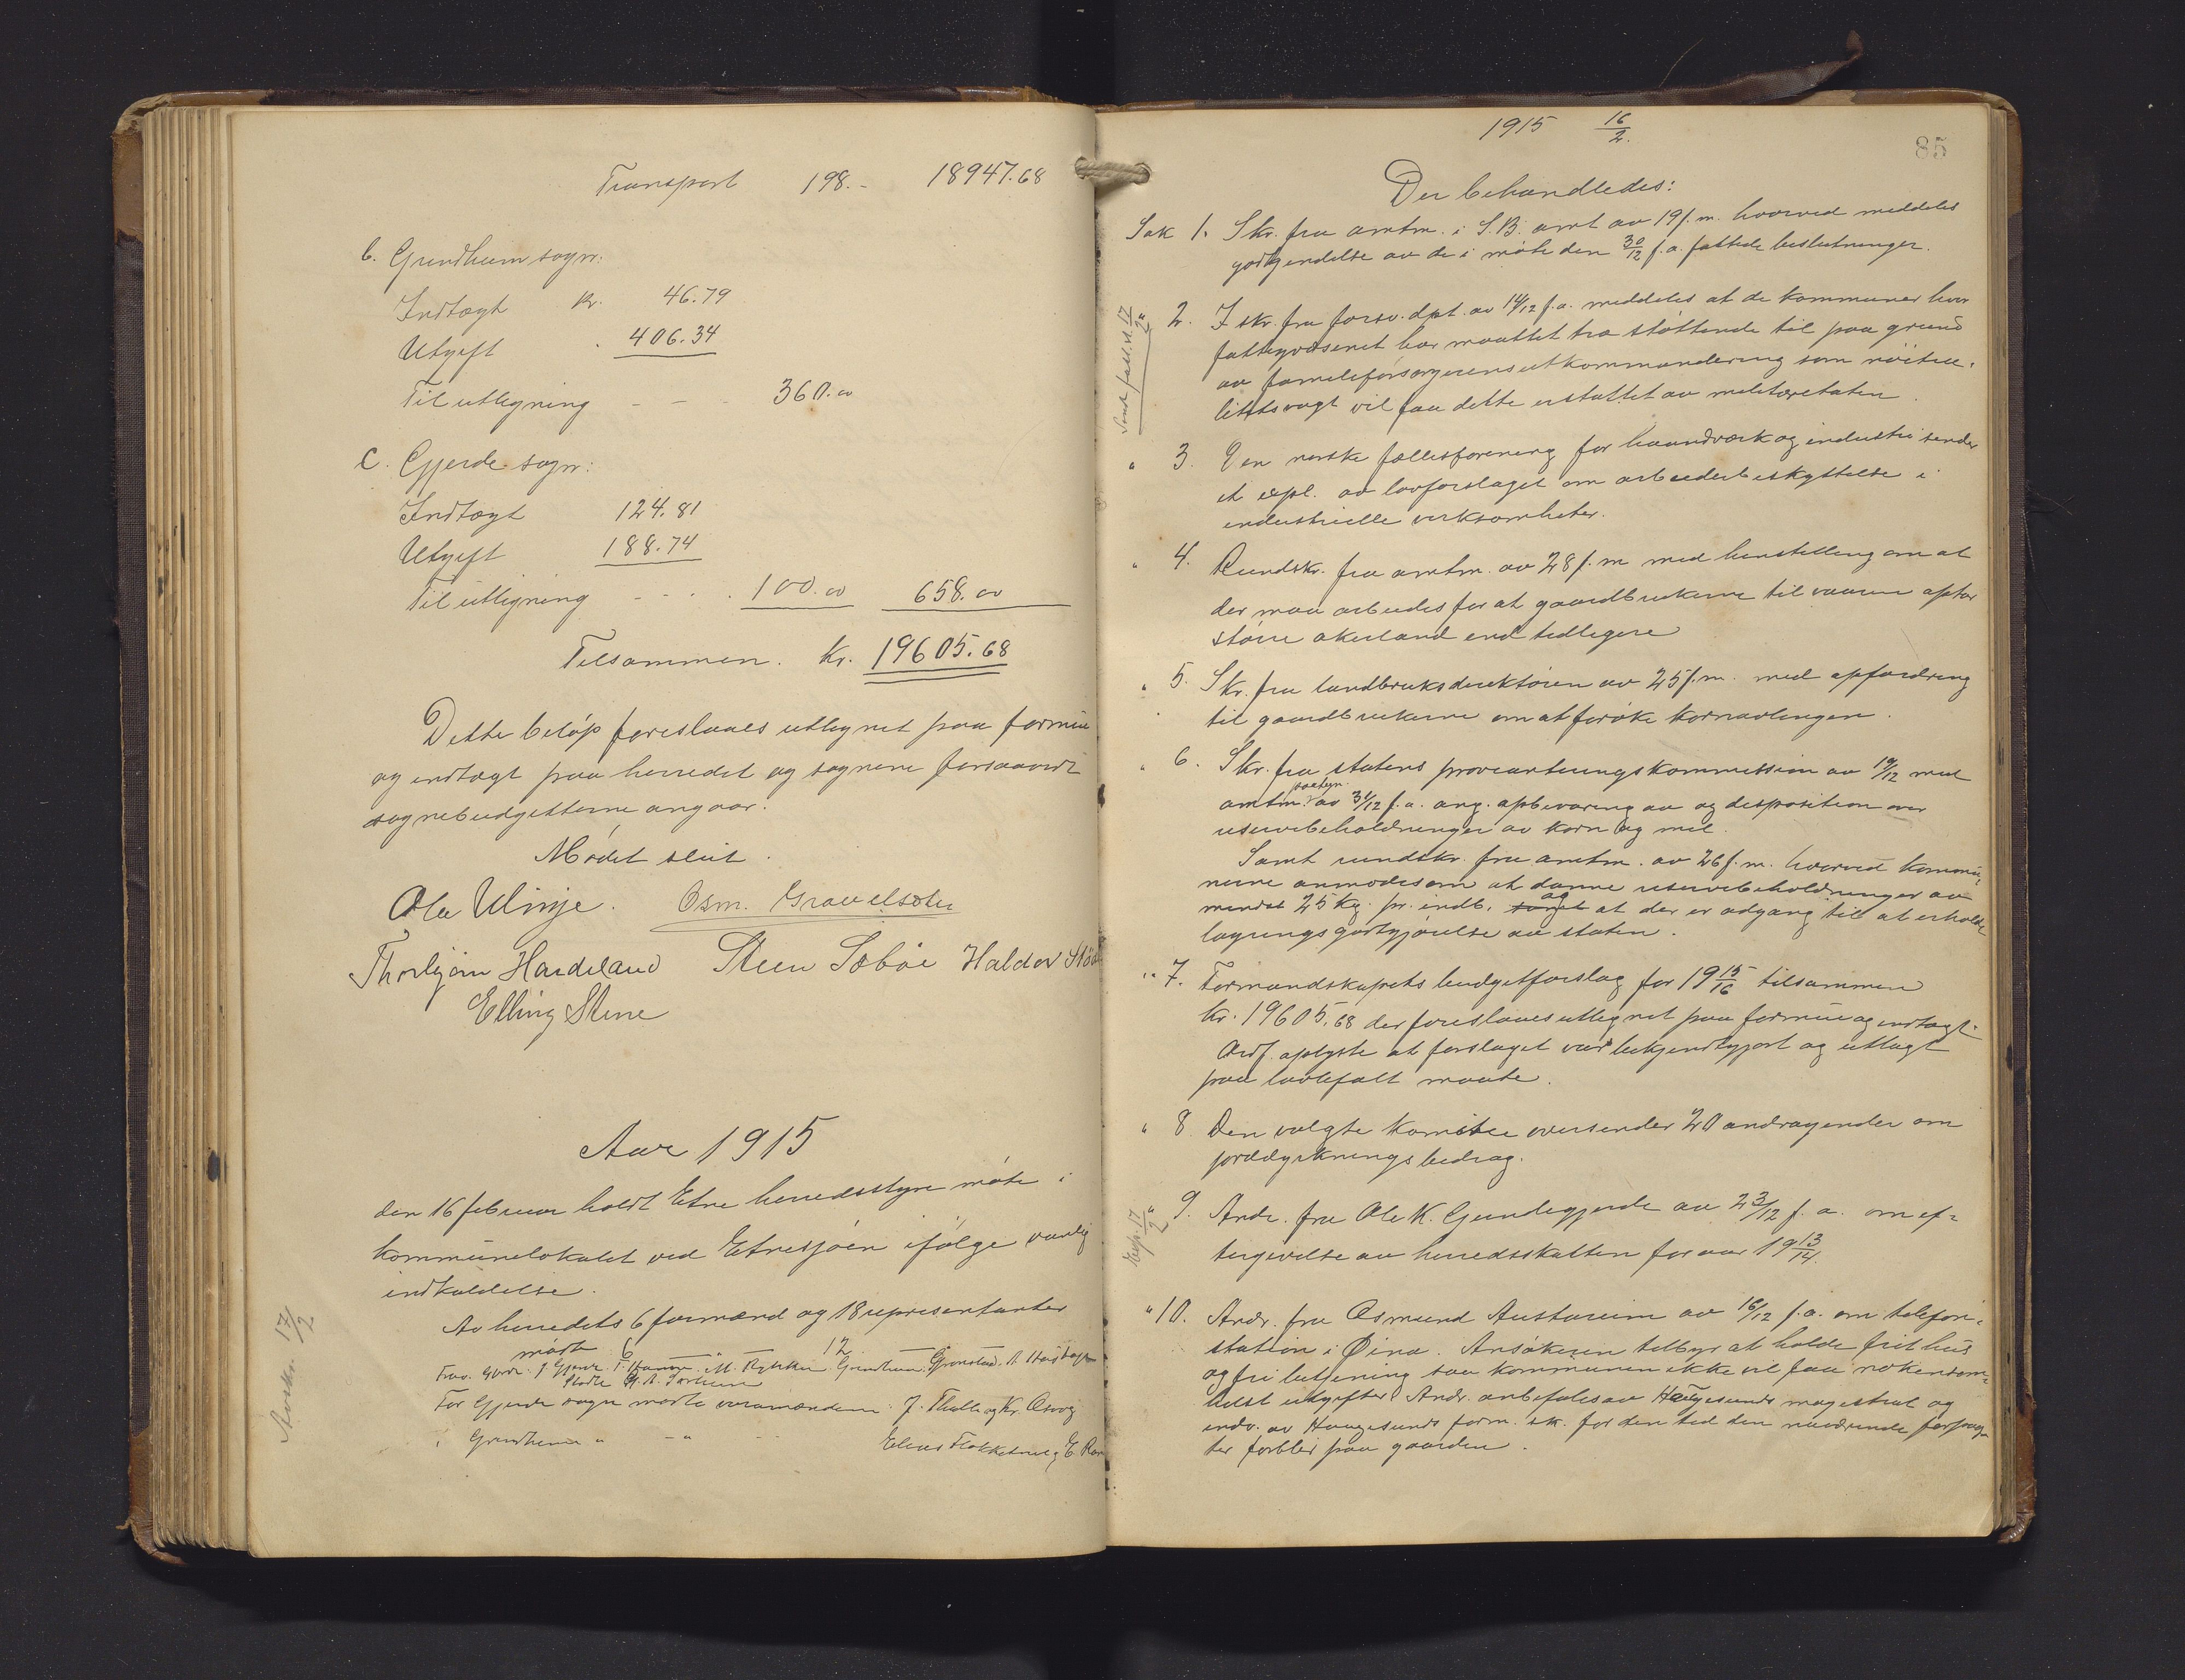 Transport 198.- 18947.68
b. Grindheim sogn:
Indtægt kr. 46.79
Utgift 406.34
Til utligning - - - 360.00
C. Gjerde sogn:
Indtægt 124.81
Utgift 188.74
Til utligning - - - 100.00 658.00
Tilsammen. kr. 19605.68
Dette beløp foreslaaes utlignet paa formue
og indtægt paa herredet og sognene forsaavidt
sognebudgetterne angaar.
Mødet slut.
Ole Ulvije. Osm. Gravelsæter
Thorbjørn Hardeland Steen Sæbøe Haldor Stö
Elling Stene
Aar 1915
den 16 februar holdt Etne herredsstyre møte i
kommunelokalet ved Etnesjøen ifølge vanlig
indkaldelse.
Av herredets 6 formænd og 18 representanter
møtte 6 — " — 12 —
For Gjerde sogn møtte varamændene: J. Thalle og Kr. Osvog
i Grindheim " - " -
Avskr. 17/2
1915 16/2.
85
Der behandledes:
Sak 1. Skr. fra amtm. i S.B. amt av 19 f.m. hvorved meddeles
godkjendelse av de i møte den 30/12 f.a. fattede beslutninger.
" 2. I skr. fra forsv. dpt. av 14/12 f.a. meddeles at de kommuner hvor
fattigvæsenet har maattet tra støttende til paa grund
av familieforsørgerens utkommandering som nøitra-
litetsvagt vil faa dette erstattet av militæretaten.
" 3. Den norske fællesforening for haandverk og industri sender
et expl. av lovforslaget om arbeiderbeskyttelse i
industrielle virksomheter.
" 4. Rundskr. fra amtm. av 28 f.m med henstilling om at
der maa arbeides for at gaardbrukerne til vaaren optar
større akerland end tidligere
" 5. Skr. fra landbruksdirektøren av 25 f.m. med opfordring
til gaardbrukerne om at forøke kornavlingen.
" 6. Skr. fra statens provianteringskommission av 19/12 med
amtm. paategn. av 31/12 f.a. ang. opbevaring av og disposition over
reservebeholdninger av korn og mel.
Samt rundskr. fra amtm. av 26 f.m. hvorved kommu-
nerne anmodes om at danne reservebeholdninger av
mindst 25 kg. pr. indb. og at der er adgang til at erholde
lagringsgodtgjørelse av staten.
" 7. Formandskapets budgetforslag for 1915/16 tilsammen
kr. 19605.68 der foreslaaes utlignet paa formue og indtægt.
Ordf. oplyste at forslaget var bekjendtgjort og utlagt
paa lovbefalt maate.
" 8. Den valgte komitee oversender 20 andragender om
jorddyrkningsbidrag.
" 9. Andr. fra Ole K. Grindegjerde av 23/12 f.a. om ef-
tergivelse av herredsskatten for aar 1913/14.
" 10. Andr. fra Osmund Austarheim av 16/12 f.a. om telefon-
station i Øina. Ansøkeren tilbyr at holde frit hus
og fri betjening saa kommunen ikke vil faa nokensom-
helst utgifter. Andr. anbefales av Haugesunds magistrat og
indv. av Haugesunds form. sk. for den tid den nuværende forpag-
ter forblir paa gaarden.
17/2
Exp. 17/2